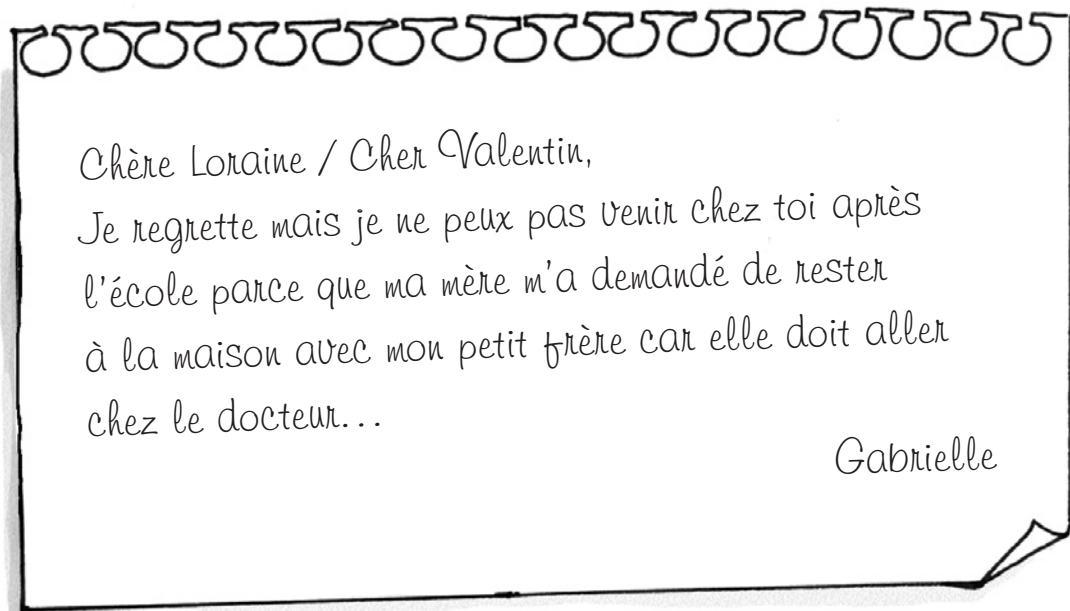 Chère Loraine / Cher Valentin,
Je regrette mais je ne peux pas venir chez toi après
l'école parce que ma mère m'a demandé de rester
à la maison avec mon petit frère car elle doit aller
chez le docteur...
Gabrielle